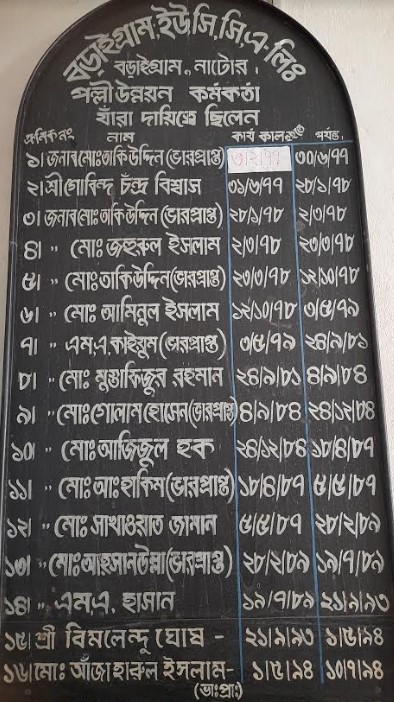 বড়াইগ্রাম,ইউ,সি,সি,এ-লিঃ
বড়াইগ্রাম, নাটোর।
পল্লী উন্নয়ন কর্মকর্তা
যাঁরা দায়িত্বে ছিলেন
ক্রমিক নং নাম কার্য কাল হতে পর্যন্ত
১। জনাব মোঃ তাকিউদ্দিন (ভারপ্রাপ্ত) ৩/২/৭৭ ৩০/৬/৭৭
২। শ্রী গোবিন্দ চন্দ্র বিশ্বাস ৩১/৬/৭৭ ২৮/১/৭৮
৩। জনাব মোঃ তাকিউদ্দিন (ভারপ্রাপ্ত) ২৮/১/৭৮ ২/৩/৭৮
৪। " মোঃ জহুরুল ইসলাম ২/৩/৭৮ ২৩/৩/৭৮
৫। " মোঃ তাকিউদ্দিন (ভারপ্রাপ্ত) ২৩/৩/৭৮ ১২/১০/৭৮
৬। " মোঃ আমিনুল ইসলাম ১২/১০/৭৮ ৩/৫/৭৯
৭। " এম,এ,কাইয়ুম (ভারপ্রাপ্ত) ৩/৫/৭৯ ২৪/৯/৮১
৮। " মোঃ মুস্তাফিজুর রহমান ২৪/৯/৮১ ৪/৯/৮৪
৯। " মোঃ গোলাম হোসেন (ভারপ্রাপ্ত) ৪/৯/৮৪ ২৪/১২/৮৪
১০। " মোঃ আজিজুল হক ২৪/১২/৮৪ ১৮/৪/৮৭
১১। " মোঃ আঃ হাকিম (ভারপ্রাপ্ত) ১৮/৪/৮৭ ৫/৫/৮৭
১২। " মোঃ সাখাওয়াত জামান ৫/৫/৮৭ ২৮/২/৮৯
১৩। " মোঃ আহসানউল্লা (ভারপ্রাপ্ত) ২৮/২/৮৯ ১৯/৭/৮৯
১৪। " এম,এ, হাসান ১৯/৭/৮৯ ২১/৯/৯৩
১৫। শ্রী বিমলেন্দু ঘোষ - ২১/৯/৯৩ ১/৫/৯৪
১৬। মোঃ আঁজাহারুল ইসলাম- ১/৫/৯৪ ১০/৭/৯৪
(ভাঃপ্রাঃ)